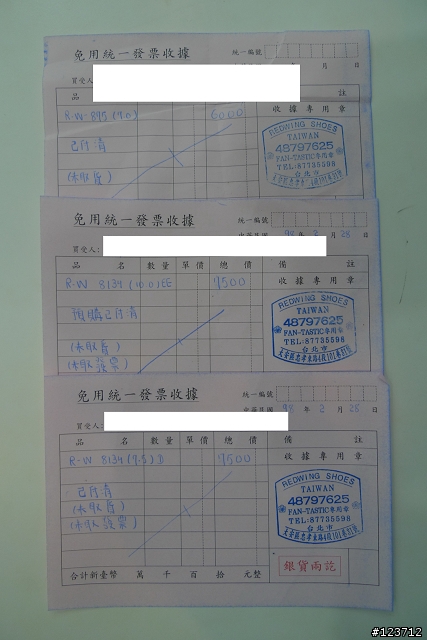 免用統一發票收據
統一編號
月 日
買受人
品 註
R-W 875 (9.0) 6000
收據專用章
已付清
(未取貨)
REDWING SHOES
TAIWAN
48797625
FAN-TASTIC專用章
TEL:87735598
台北市
免用統一發票收據
統一編號
中華民國 98 年 2 月 28 日
買受人:
品 名 數量 單價 總價 備 註
R-W 8134 (10.0) EE 7500
收據專用章
預購已付清
(未取貨)
(未取發票)
REDWING SHOES
TAIWAN
48797625
FAN-TASTIC專用章
TEL:87735598
台北市
大安區忠孝東路4段101巷31號
免用統一發票收據
統一編號
中華民國 98 年 2 月 28 日
買受人:
品 名 數量 單價 總價 備 註
R-W 8134 (9.5) D 7500
收據專用章
已付清
(未取貨)
(未取發票)
REDWING SHOES
TAIWAN
48797625
FAN-TASTIC專用章
TEL:87735598
台北市
大安區忠孝東路4段101巷31號
銀貨兩訖
合計新臺幣 萬 千 百 拾 元整
#123712